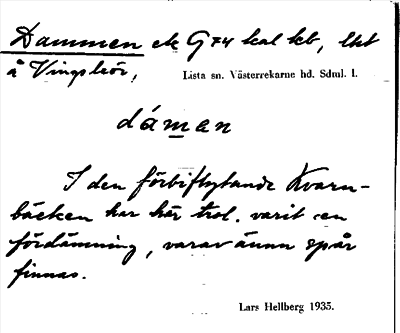 Dammen ek G74 kal kb, lht
å Vingsleör,
Lista sn. Västerrekarne hd. Sdml. l.
dámen
I den förbiflytande Kvarn-
bäcken har här trol. varit en
fördämning, varav ännu spår
finnas.
Lars Hellberg 1935.